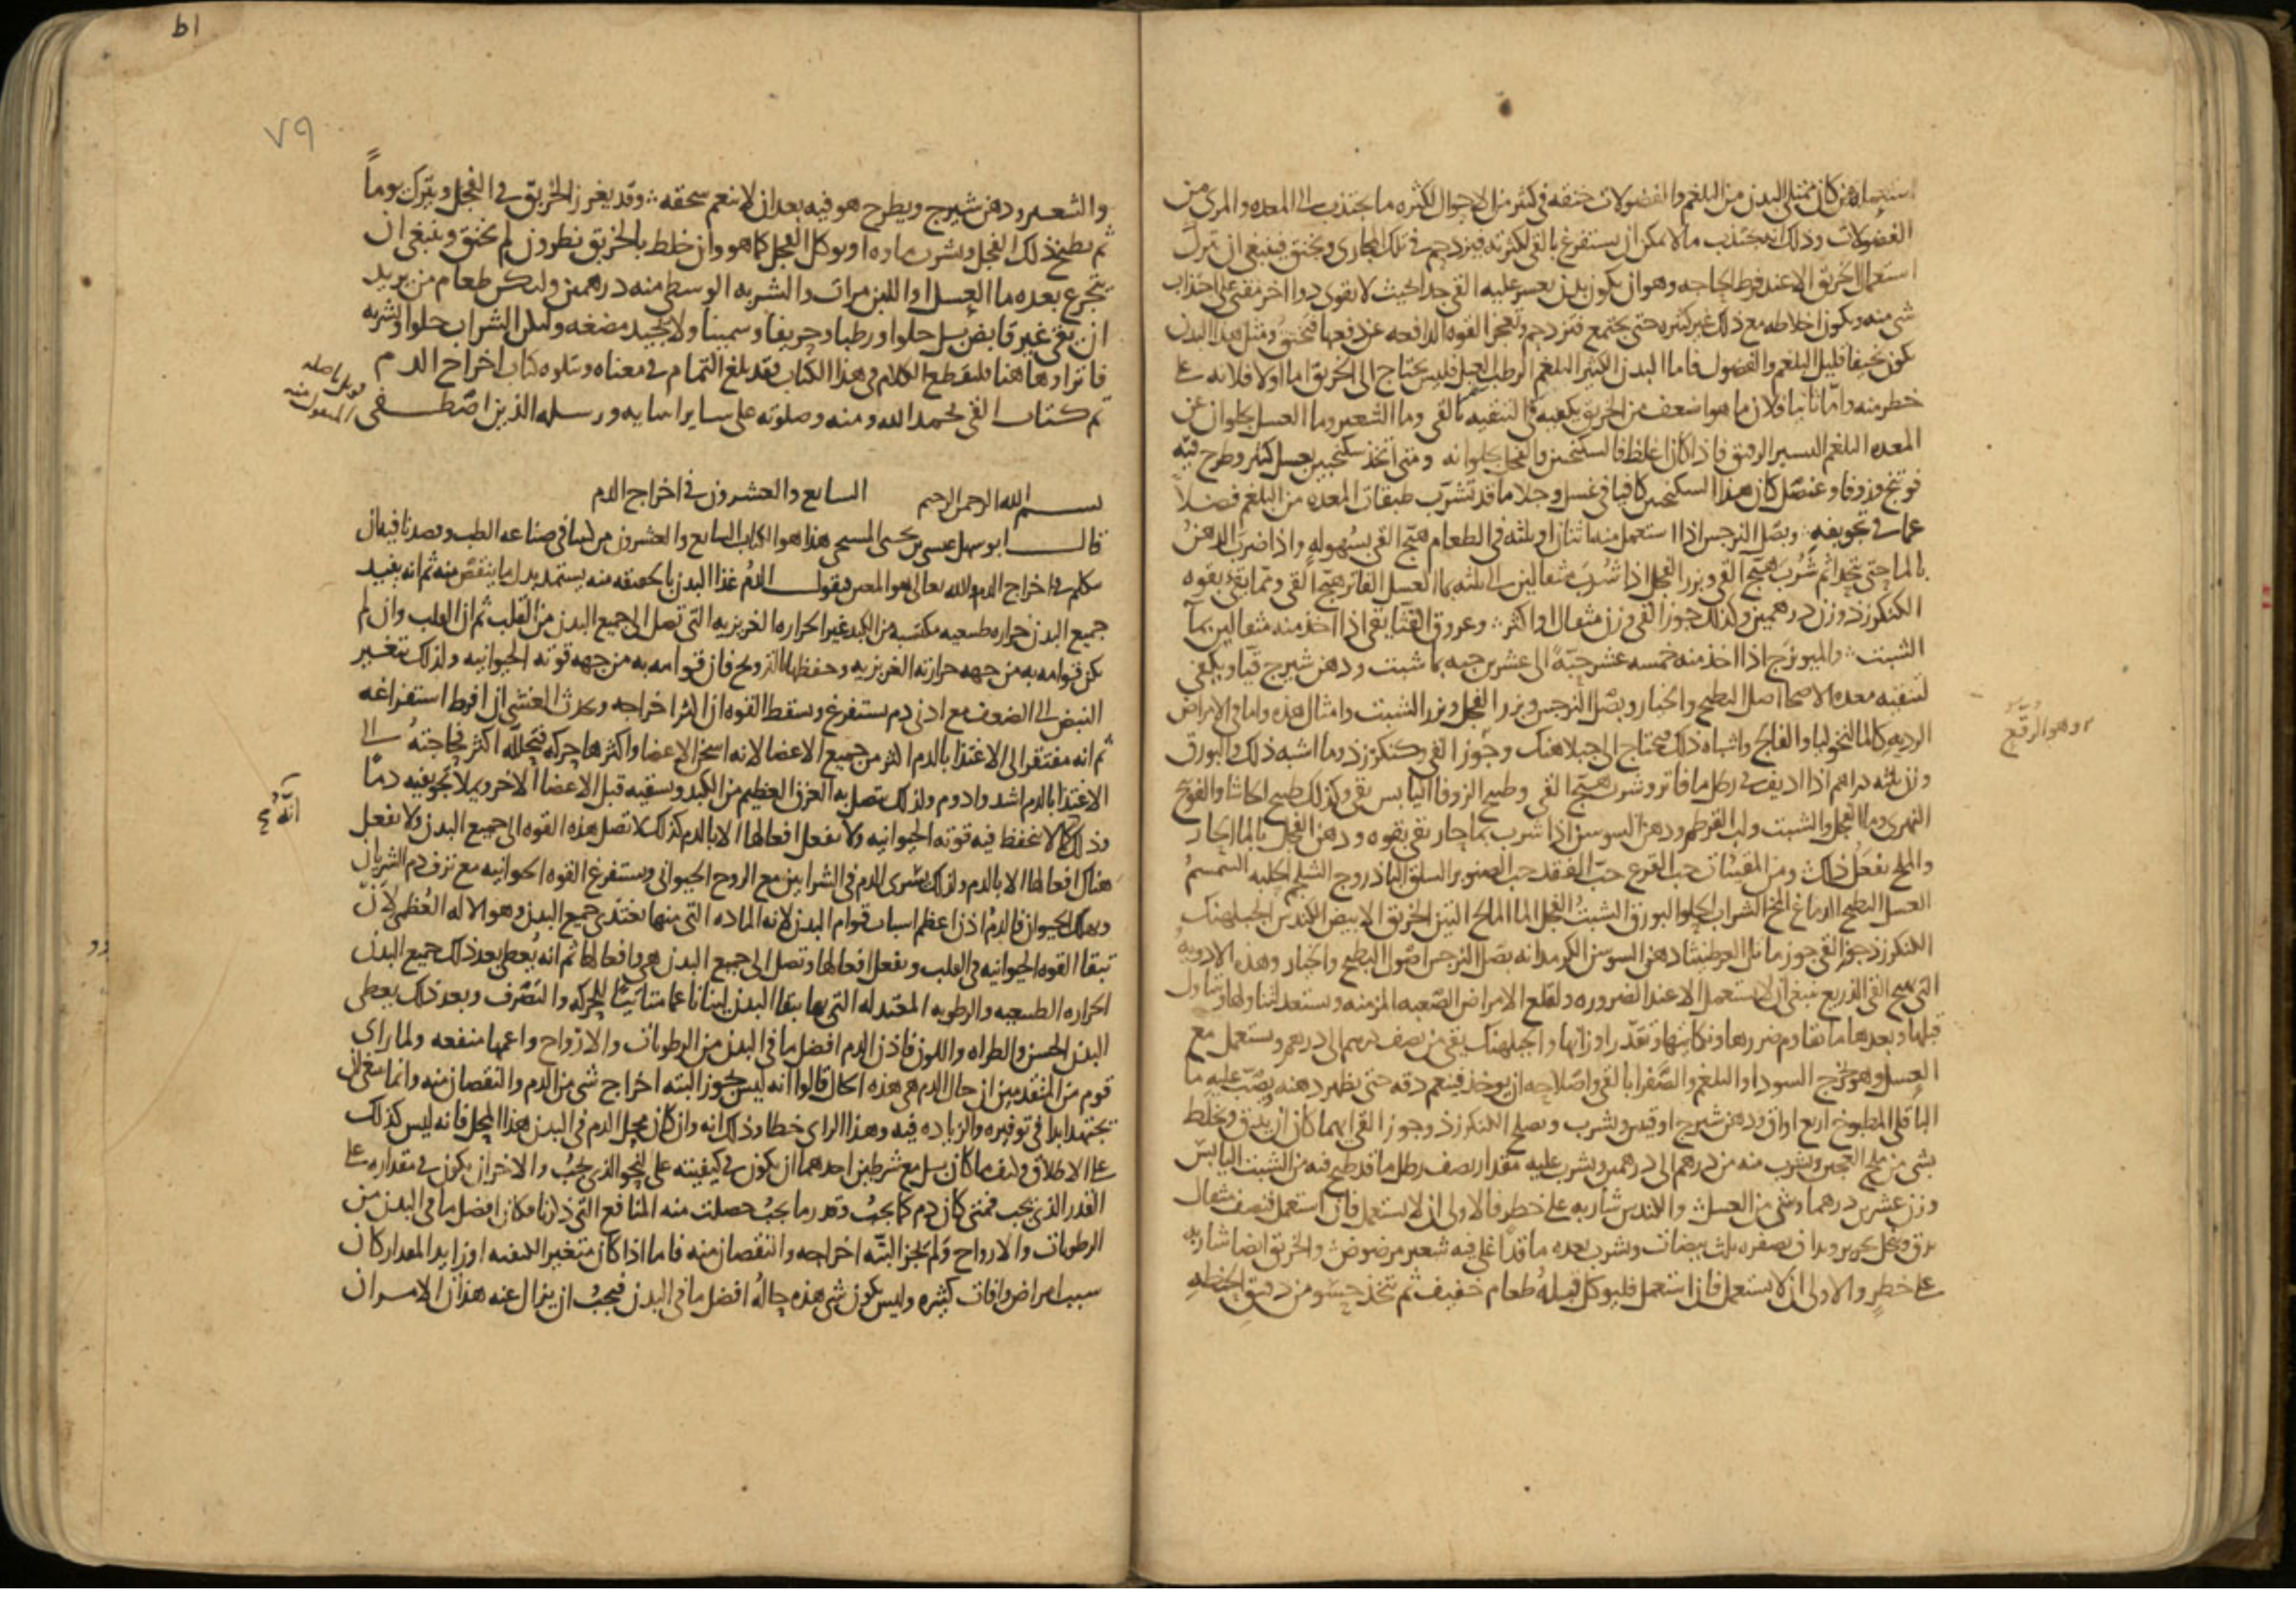 استعماله من كان ممتلي البدن من البلغم والفضولات خنقه في كثير من الاحوال لكثره ما يجتذب الى المعده والمري من
الفضولات وذلك انه يجتذب ما لا يمكن ان يستفرغ بالقي لكثرته فيزدحم في تلك المجاري ويخنق فينبغي ان يترك
استعمال الخربق الا عند فرط الحاجه وهو ان يكون بدن يعسر عليه القي جدا بحيث لا يقوى دوا اخر مقي على اجتذاب
شي منه ويكون اخلاطه مع ذلك غير كثيره حتى يجتمع فتزدحم وتعجز القوه الدافعه عن دفعها فتخنق ومثل هذا البدن
يكون نحيفا قليل البلغم والفضول فاما البدن الكثير البلغم الرطب العبل فليس يحتاج الى الخربق اما اولا فلانه على
خطر منه واما ثانيا فلان ما هو اضعف من الخربق يكفيه في التنقيه بالقي وما الشعير وما العسل يجلوان عن
المعده البلغم اليسير الرقيق فاذا كان اغلظ فالسكنجبين والفجل يجلوانه ومتى اتخذ سكنجبين بعسل كثير وطرح فيه
فوتنج وزوفا وعنصل كان هذا السكنجبين كافيا في غسل وجلا ما قد تشرب طبقات المعده من البلغم فضلا
عما في تجويفه وبصل النرجس اذا استعمل منه اثنان او ثلثه في الطعام هيج القي بسهوله واذا ضرب الدهن
بالما حتى يتحد ثم شرب هيج القي وبزر الفجل اذا شرب مثقالين الى ثلثه بما العسل الفاتر هيج القي ومما يقي بقوه
الكنكرزد وزن درهمين وكذلك جوز القي وزن مثقال او اكثر وعروق القثا يقي اذا اخذ منه مثقالين بما
الشبت والميويزج اذا اخذ منه خمسه عشر حبه الى عشرين حبه بما شبت ودهن شيرج قيا ويكفي
لتنقيه معده الاصحا اصل البطيخ والخيار وبصل النرجس وبزر الفجل وبزر الشبت وامثال هذه واما في الامراض
الرديه كالمالنخوليا والفالج واشباه ذلك فيحتاج الى جبلاهنك وجوز القي وكنكرزد وما اشبه ذلك والبورق
وزن ثلثه دراهم اذا اديف في رطل ما فاتر وشرب هيج القي وطبيخ الزوفا اليابس يقي وكذلك طبيخ الحاشا والفوتنج
النهري وما الفجل والشبت ولب القرطم ودهن السوسن اذا شرب بما حار يقي بقوه ودهن الفجل بالما الحار
والملح يفعل ذلك ومن المقيئات حب القرع حب الفقد حب الصنوبر السلق الباذروج الشلجم الحلبه السمسم
العسل البطيخ الدماغ المخ الشراب الحلو البورق الشبت الفجل الما المالح التين الخربق الابيض الكندس الجبلهنك
الكنكرزد جوز القي جوز ماثل العرطنيثا دهن السوسن الكرمدانه بصل النرجس اصول البطيخ والخيار وهذه الادويه
التي تهيج القي الذريع ينبغي ان لا يستعمل الا عند الضروره ولقلع الامراض الصعبه المزمنه ويستعد لتناولها ويتناول
قبلها وبعدها ما يقاوم ضررها ونكايتها وتقدر اوزانها والجبلهنك يقي من نصف درهم الى درهم ويستعمل مع
العسل وهو يخرج السودا والبلغم والصفرا بالقي واصلاحه ان يوخذ فينعم دقه حتى يظهر دهنه يصب عليه ما
الباقلي المطبوخ اربع اواق ودهن شيرج اوقيه ويشرب ويصلح الكنكرزد وجوز القي ايهما كان ان يدق ويخلط
بشي من ملح العجين ويشرب منه من درهم الى درهمين ويشرب عليه مقدار نصف رطل ما قد طبخ فيه من الشبت اليابس
وزن عشرين درهما وشي من العسل والكندس شاربه على خطر فالاولى ان لا يستعمل فان استعمل فنصف مثقال
يدق وينخل بحرير ويداف بصفره ثلث بيضات ويشرب بعده ما قد اغلي فيه شعير مرضوض والخربق ايضا شاربه
على خطر والاولى ان لا يستعمل فان استعمل فليوكل قبله طعام خفيف ثم يتخذ حسو من دقيق الحنطه
وهو الرقيع
٧٩
والشعير ودهن شيرج ويطرح هو فيه بعد ان لا ينعم سحقه وقد يغرز الخربق في الفجل ويترك يوما
ثم يطبخ ذلك الفجل ويشرب ماوه او يوكل الفجل كما هو وان خلط بالخربق نطرون لم يخنق وينبغي ان
يتجرع بعده ما العسل او اللبن مرات والشربه الوسطى منه درهمين وليكن طعام من يريد
ان يقي غير قابض بل حلوا ورطبا وحريفا وسمينا ولا يجيد مضغه وليكن الشراب حلوا ويشربه
فاترا وهاهنا فليقطع الكلام في هذا الكتاب فقد بلغ التمام في معناه ويتلوه كتاب اخراج الدم
تم كتاب القي بحمد الله ومنه وصلوته على ساير انبيايه ورسله الذين اصطفى
قوبل باصله
المنقول منه
بسم الله الرحمن الرحيم السابع والعشرون في اخراج الدم
قال ابو سهل عيسى بن يحيى المسيحي هذا هو الكتاب السابع والعشرون من كتبنا في صناعه الطب وقصدنا فيه ان
نتكلم في اخراج الدم والله تعالى هو المعين فنقول الدم غذا البدن بالحقيقه منه يستمد بدل ما ينتقص منه ثم انه يفيد
جميع البدن حراره طبيعيه مكتسبه من الكبد غير الحراره الغريزيه التي تصل الى جميع البدن من القلب ثم ان القلب وان لم
يكن قوامه به من جهه حرارته الغريزيه وحفظها بالترويح فان قوامه به من جهه قوته الحيوانيه ولذلك يتغير
النبض الى الضعف مع ادنى دم يستفرغ وتسقط القوه ان اكثر اخراجه ويحدث الغشي ان افرط استفراغه
ثم انه مفتقر الى الاغتذا بالدم اكثر من جميع الاعضا لانه اسخن الاعضا واكثرها حركه فتحلله اكثر فحاجته الى
الاغتذا بالدم اشد وادوم ولذلك يتصل به العرق العظيم من الكبد ويسقيه قبل الاعضا الاخر ويملا تجويفيه دما
وذلك كما لا تحفظ فيه قوته الحيوانيه ولا تفعل افعالها الا بالدم كذلك لا تصل هذه القوه الى جميع البدن ولا تفعل
هناك افعالها الا بالدم ولذلك يسري الدم في الشرايين مع الروح الحيواني ويستفرغ القوه الحيوانيه مع نزف دم الشريان
ويهلك الحيوان فالدم اذن اعظم اسباب قوام البدن لانه الماده التي منها يغتذي جميع البدن وهو الاله العظمى لان
تبقا القوه الحيوانيه في القلب وتفعل افعالها وتصل الى جميع البدن هي وافعالها ثم انه يعطي بعد ذلك جميع البدن
الحراره الطبيعيه والرطوبه المعتدله التي بها يبقا البدن لينا ناعما متاتيا للحركه والتصرف وبعد ذلك يعطي
البدن الحسن والطراه واللون فاذن الدم افضل ما في البدن من الرطوبات والارواح واعمها منفعه ولما راى
قوم من المتقدمين ان حال الدم هي هذه الحال قالوا انه ليس يجوز البته اخراج شي من الدم والنقصان منه وانما ينبغي ان
يجتهد ابدا في توفيره والزياده فيه وهذا الراي خطا وذلك انه وان كان محل الدم في البدن هذا المحل فانه ليس كذلك
على الاطلاق وكيف ما كان بل مع شرطين احدهما ان يكون في كيفيته على النحو الذي يجب والاخر ان يكون في مقداره على
القدر الذي يجب فمتى كان دم كما يجب وقدر ما يجب حصلت منه المنافع التي ذكرنا وكان افضل ما في البدن من
الرطوبات والارواح ولم يجز البته اخراجه والنقصان منه فاما اذا كان متغير الكيفيه او زايد المقدار كان
سبب امراض وافات كثيره وليس يكون شي هذه حاله افضل ما في البدن فيجب ان يزال عنه هذان الامران